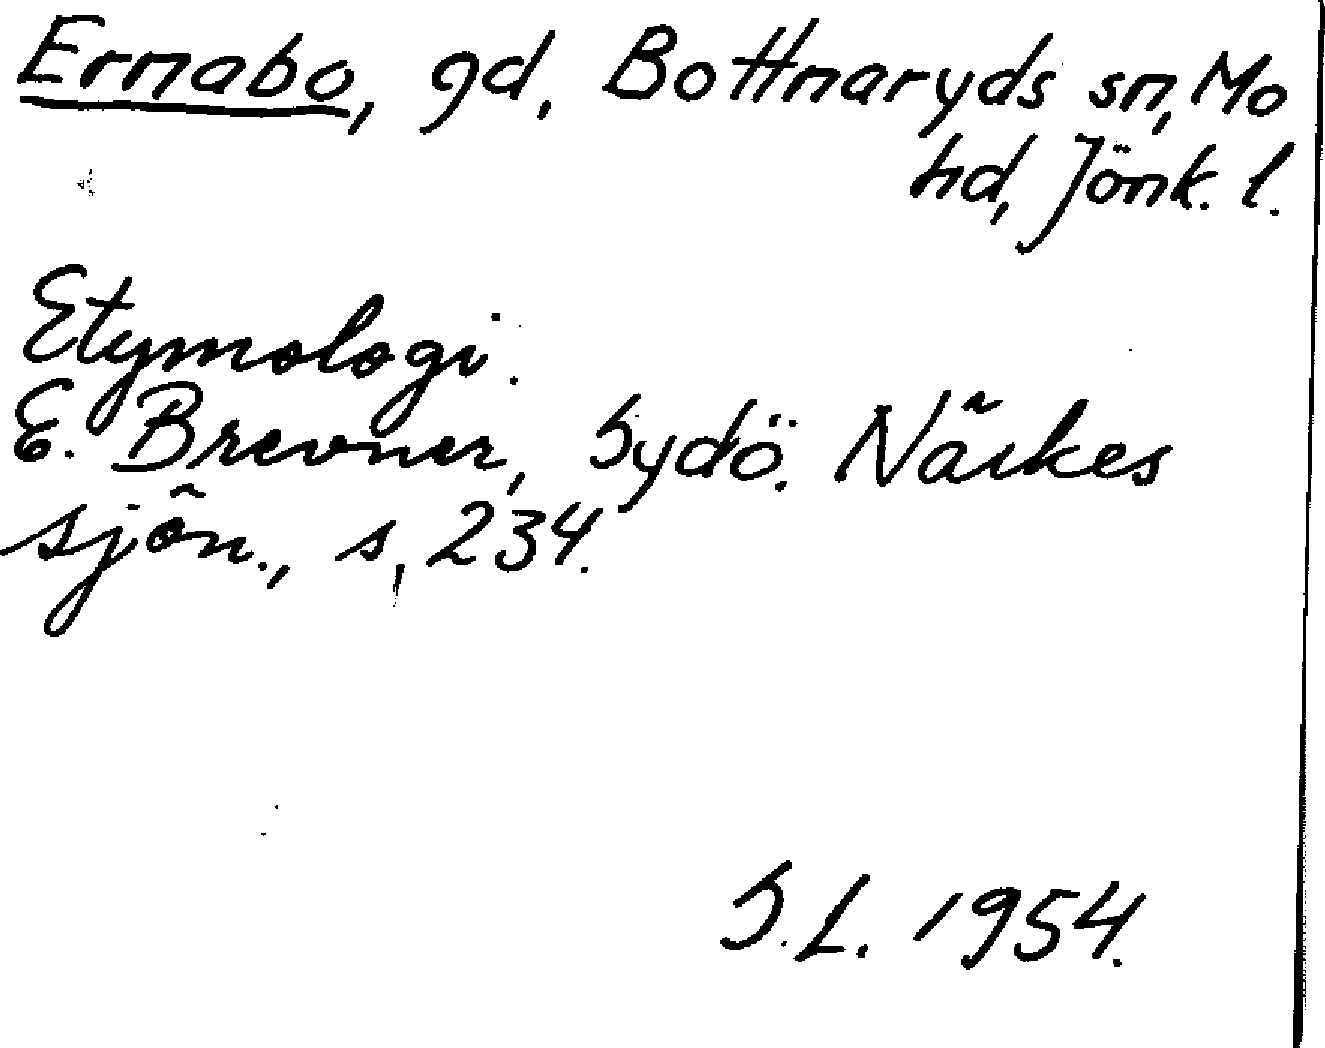 Ernabo, gd, Bottnaryds sn, Mo
hd, Jönk. l.
Etymologi.
E. Brevner, Sydö. Närkes
sjön., s. 234.
S.L. 1954.